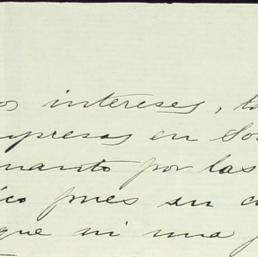 os intereses,
mpresas en
uanto por las
ico pues su
que ni una